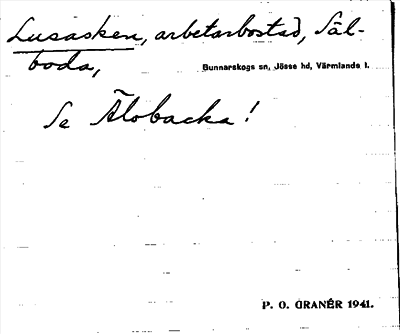 Lusasken, arbetarbostad, Säl-
boda,
Gunnarskogs sn, Jösse hd, Värmlands l.
Se Älobacka!
P. O. GRANÉR 1941.